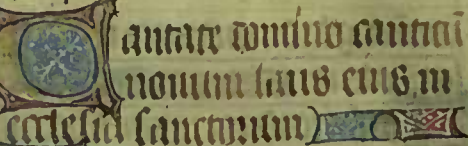 Cantate domino canticū
nouum laus eius in
ecclesia sanctorum